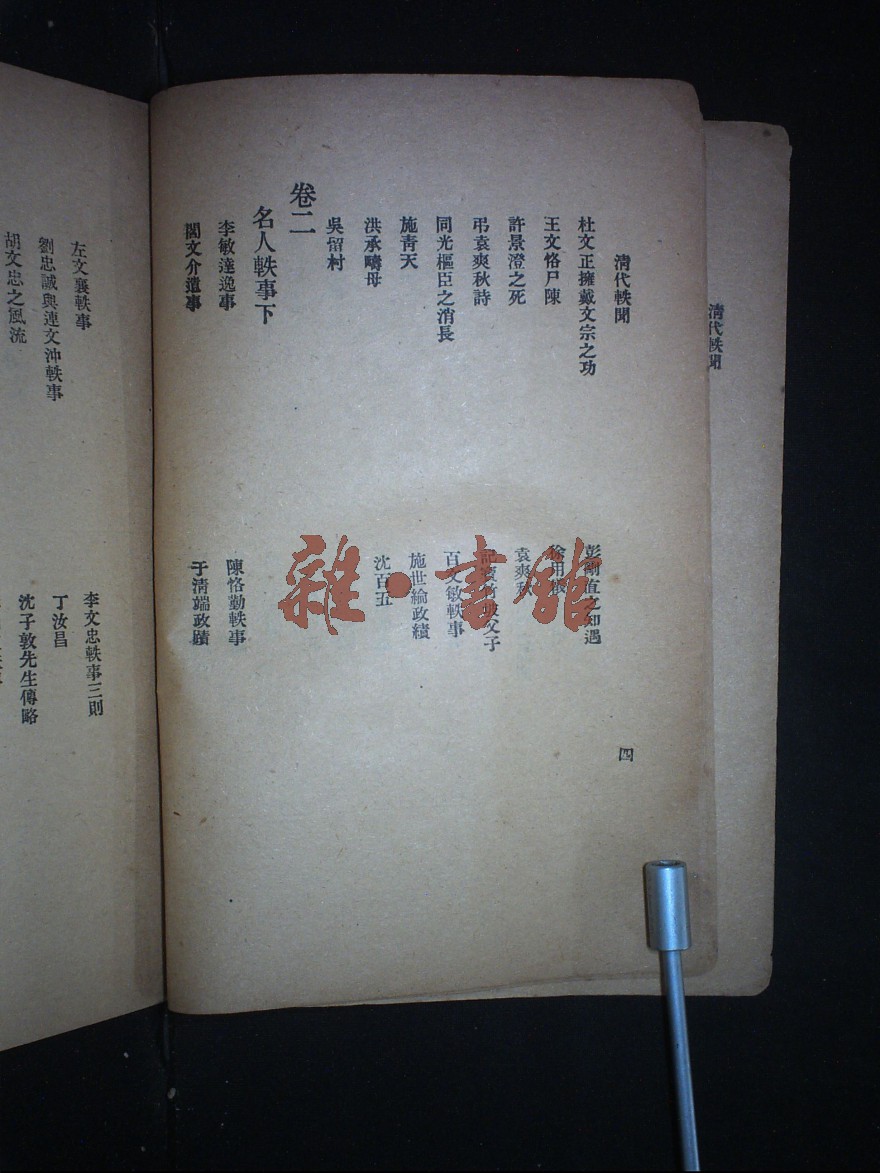 清代軼聞
清代軼聞
四
杜文正擁戴文宗之功
彭剛直之知遇
王文恪尸陳
徐用儀
許景澄之死
袁爽秋
弔袁爽秋詩
記寶竹坡父子
同光樞臣之消長
百文敏軼事
施青天
施世綸政績
洪承疇母
沈百五
吳留村
卷二
名人軼事下
李敏達逸事
陳恪勤軼事
閻文介遺事
于清端政蹟
左文襄軼事
李文忠軼事三則
劉忠誠與連文沖軼事
丁汝昌
胡文忠之風流
沈子敦先生傳略
雜·書館